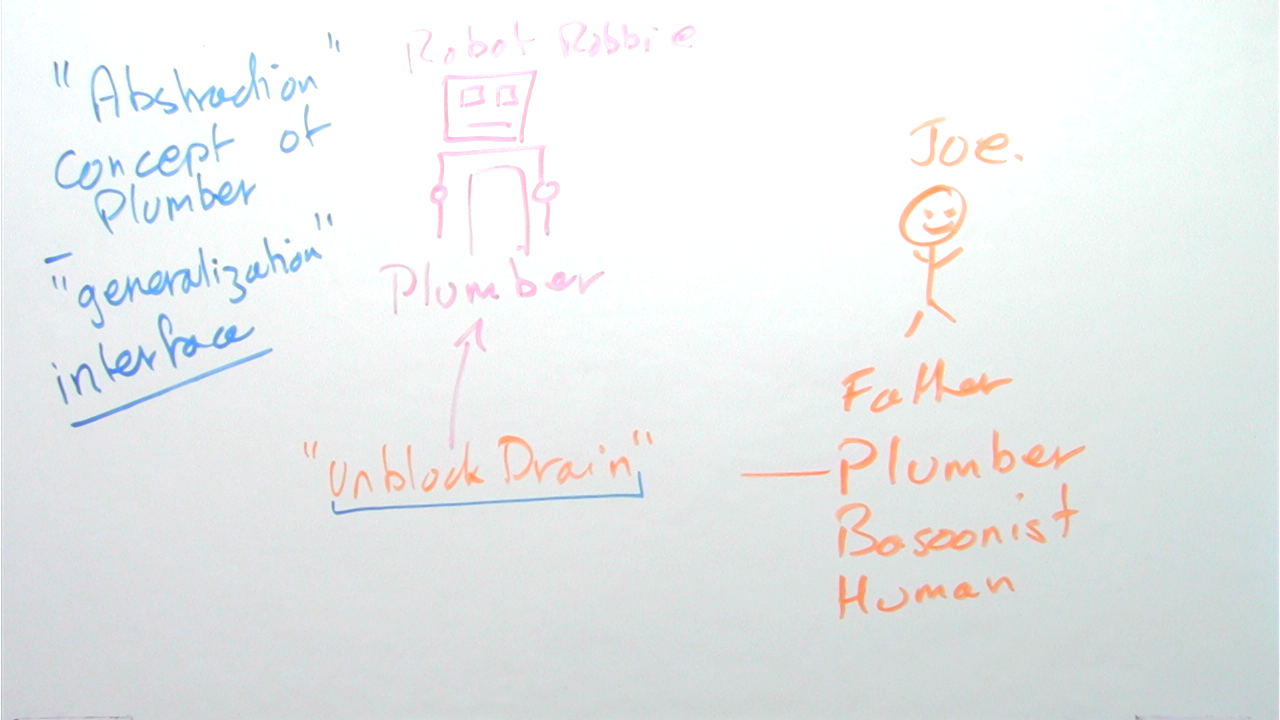 "Abstraction"
Concept of
Plumber
–
"generalization"
interface
Robot Robbie
Plumber
"unblock Drain"
Joe.
Father
Plumber
Basoonist
Human